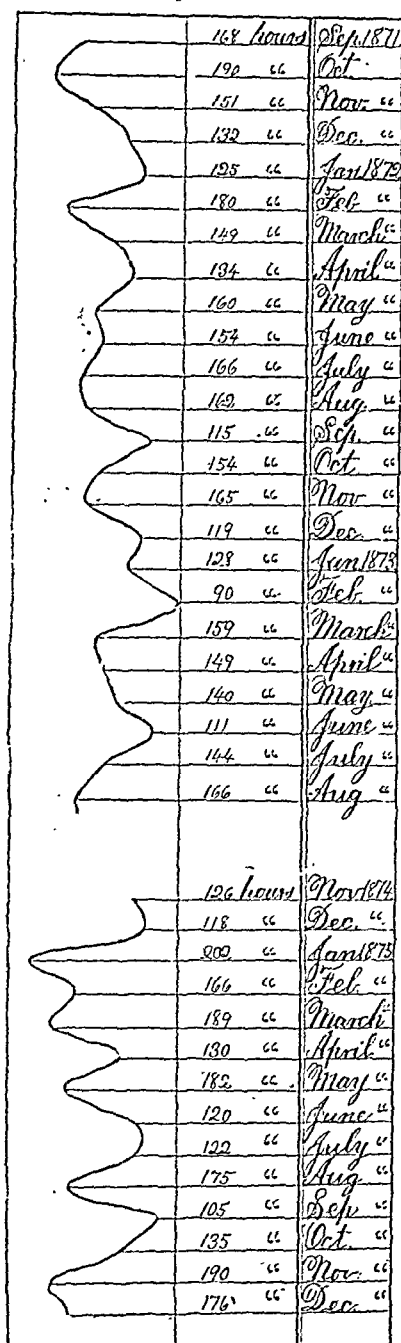 168 hours Sep. 1871
190 " Oct.
151 " Nov. "
132 " Dec. "
125 " Jan 1872
180 " Feb "
149 " March "
134 " April "
160 " May "
154 " June "
166 " July "
162 " Aug. "
115 " Sep. "
154 " Oct "
165 " Nov "
119 " Dec. "
128 " Jan 1873
90 " Feb. "
159 " March "
149 " April "
140 " May "
111 " June "
144 " July "
166 " Aug "
126 hours Nov 1874
118 " Dec. "
202 " Jan 1875
166 " Feb. "
189 " March "
130 " April "
182 " May "
120 " June "
122 " July "
175 " Aug "
105 " Sep "
135 " Oct. "
190 " Nov. "
176 " Dec. "